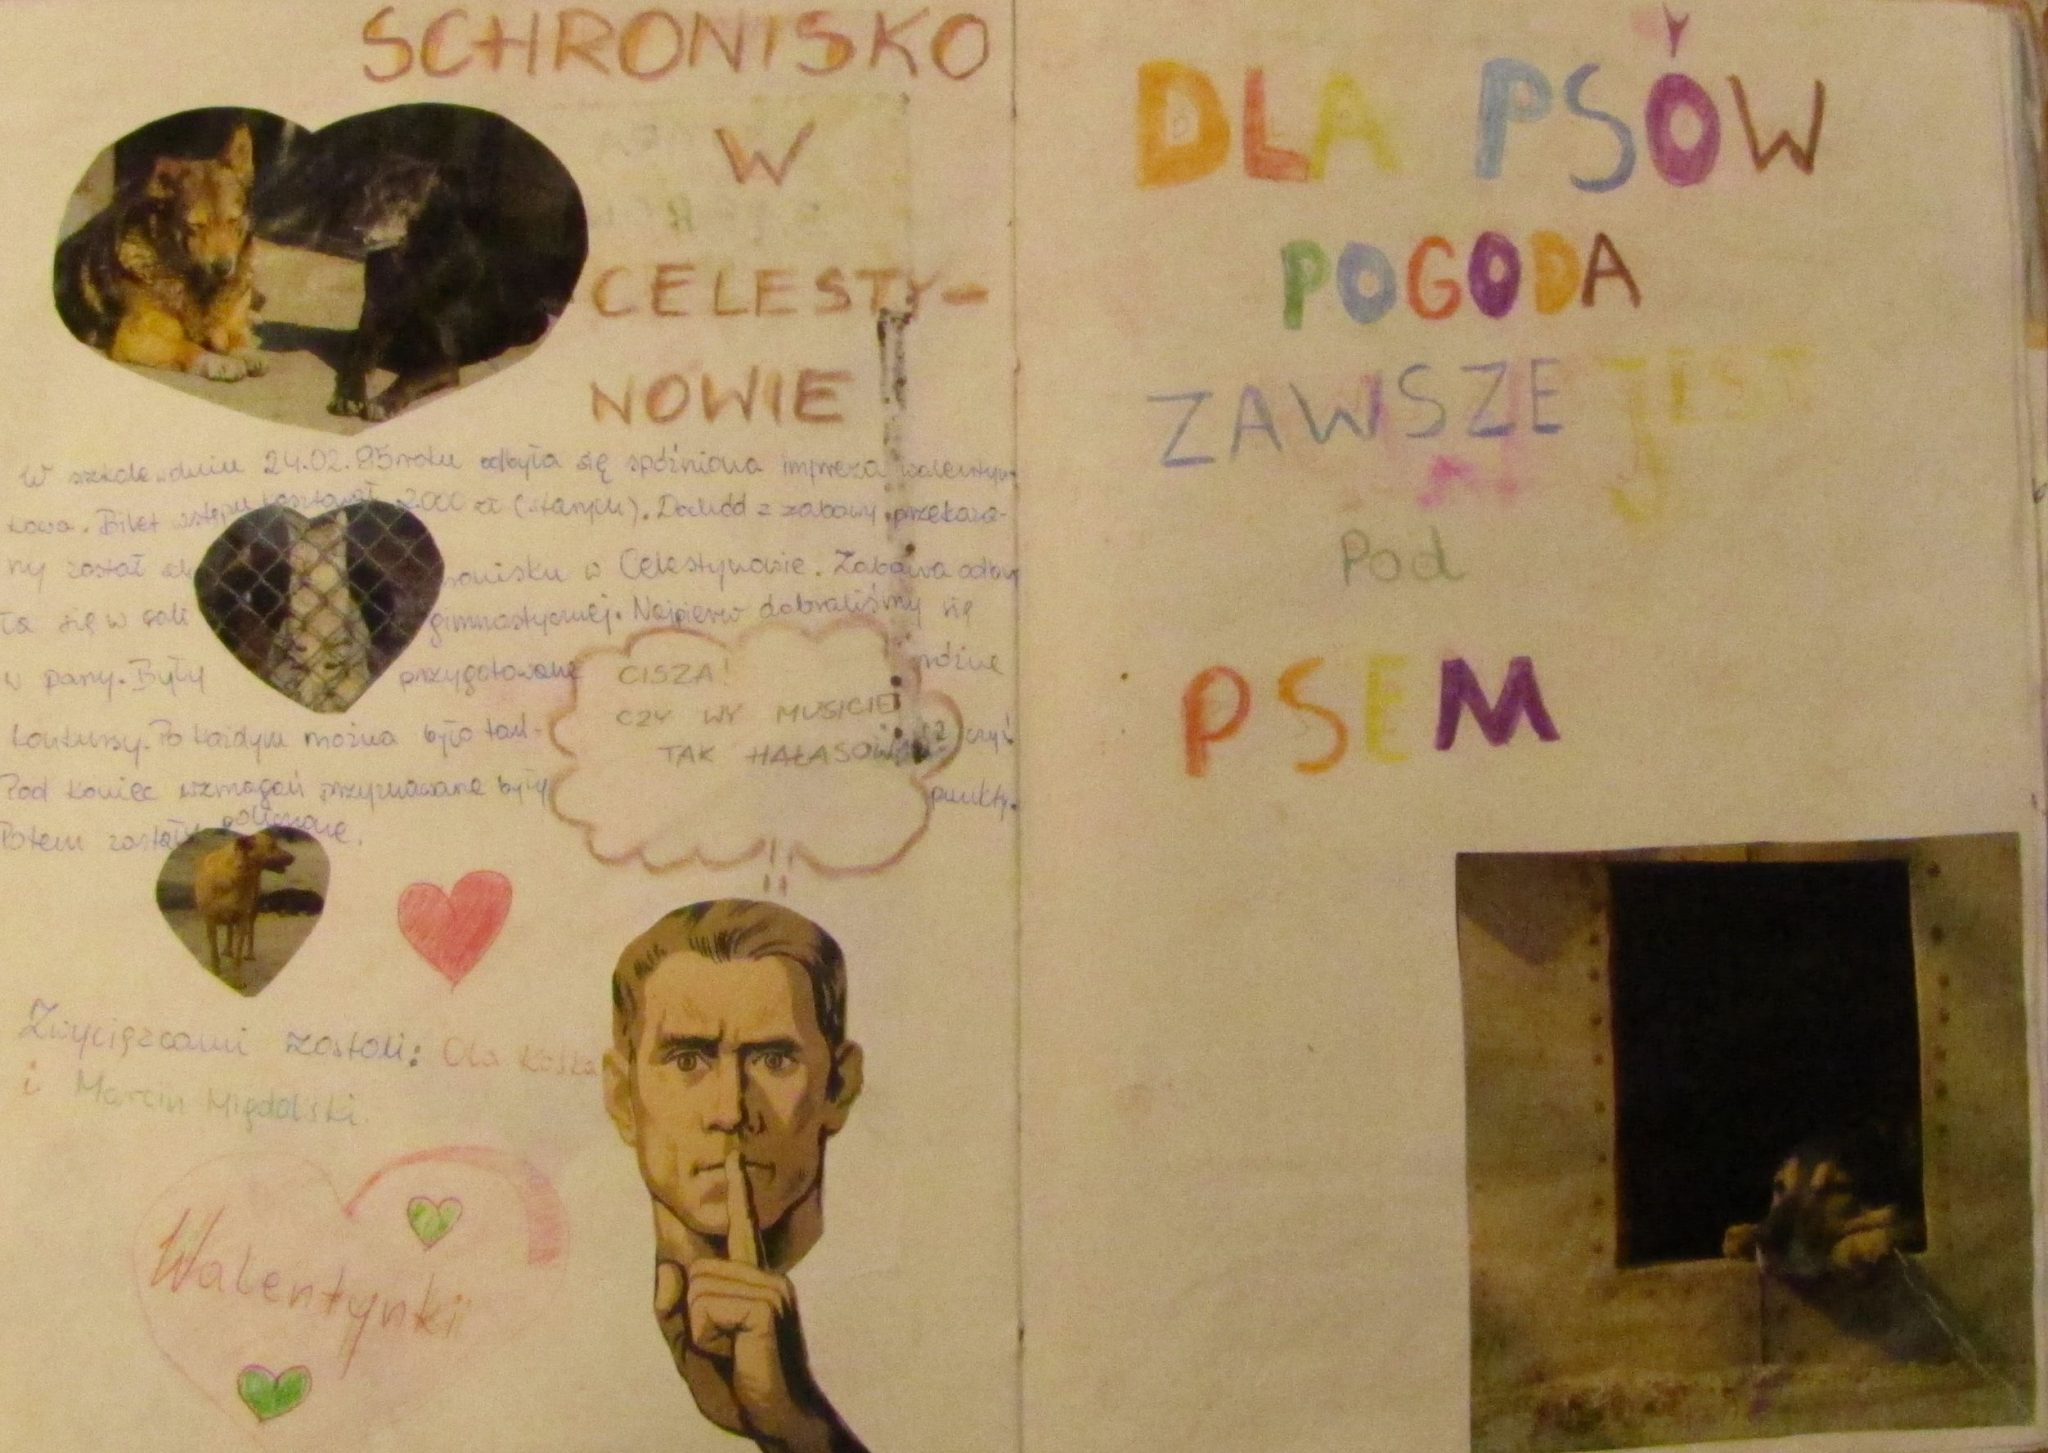 SCHRONISKO
W
CELESTY-
NOWIE
W szkole w dniu 24.02.95 roku odbyła się spóźniona impreza walentyn-
kowa. Bilet wstępu kosztował 2000 zł (starych). Dochód z zabawy przekaza-
ny został ronisku w Celestynowie. Zabawa odby
ła się w sali gimnastycznej. Najpierw dobraliśmy się
w pary. Były przygotowane różne
konkursy. Po każdym można było tań- czyć
Pod koniec wzmagań przyznawane były punkty.
Potem zostały policzone.
CISZA!
CZY WY MUSICIE
TAK HAŁASOWAĆ?
Zwycięzcami zostali: Ola
i Marcin Migdalski.
Walentynki
DLA PSÓW
POGODA
ZAWSZE JEST
Pod
PSEM